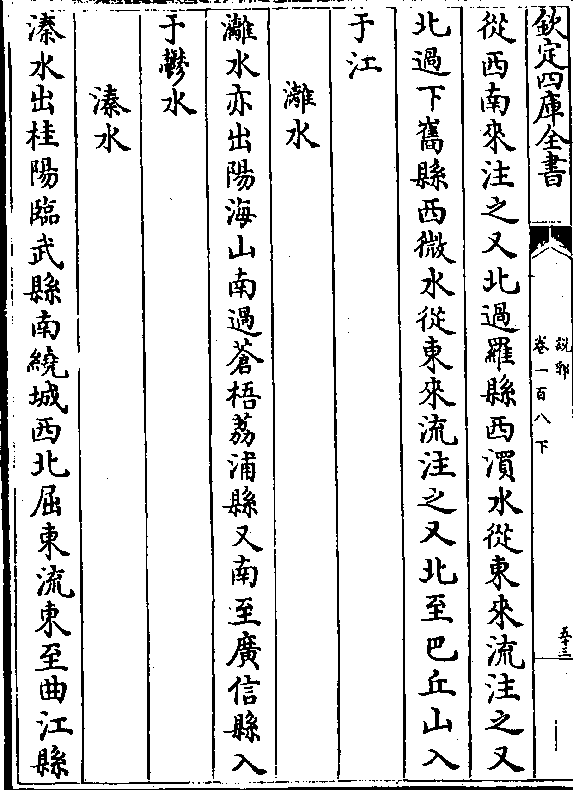 欽定四庫全書
說郛
卷一百八下
五十三
從西南來注之又北過羅縣西濆水從東來流注之又
北過下雋縣西微水從東來流注之又北至巴丘山入
于江
灕水
灕水亦出陽海山南過蒼梧荔浦縣又南至廣信縣入
于鬱水
溱水
溱水出桂陽臨武縣南繞城西北屈東流東至曲江縣